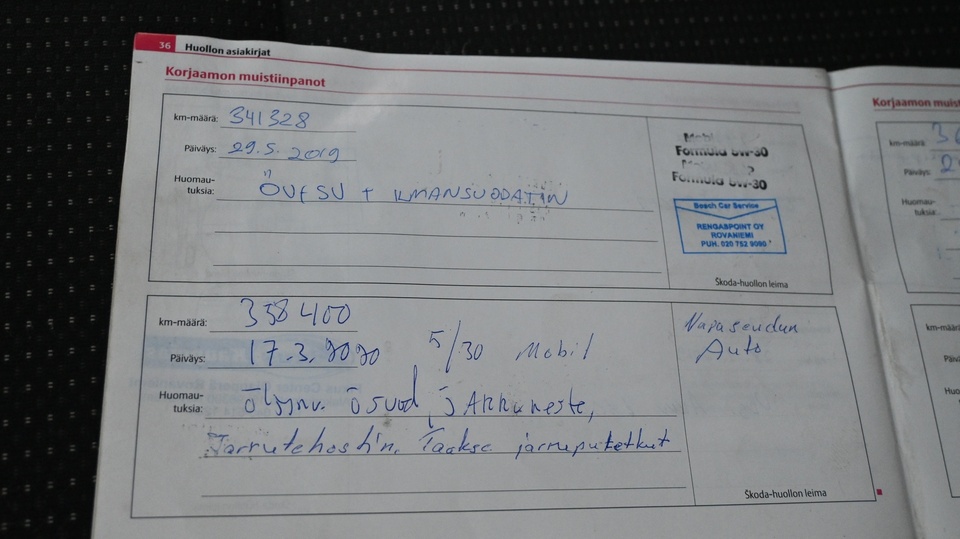 36 Huollon asiakirjat
Korjaamon muistiinpanot
km-määrä: 341328
Päiväys: 29.5.2019
Huomau-
tuksia: ÖV+SU + ILMANSUODATIN
Formula 5W-30
Formula 5W-30
Bosch Car Service
RENGASPOINT OY
ROVANIEMI
PUH. 020 752 9090
Škoda-huollon leima
km-määrä: 358400
Päiväys: 17.3.2020 5/30 Mobil
Huomau-
tuksia: Öljynv. ösuod, jarruneste,
Jarrutehostin, Taakse jarruputket
Napaseudun
Auto
Škoda-huollon leima
Korjaamon muist
km-määrä: 36
Päiväys: 2
Huomau-
tuksia:
km-määrä
Päivä
Huo
tuk